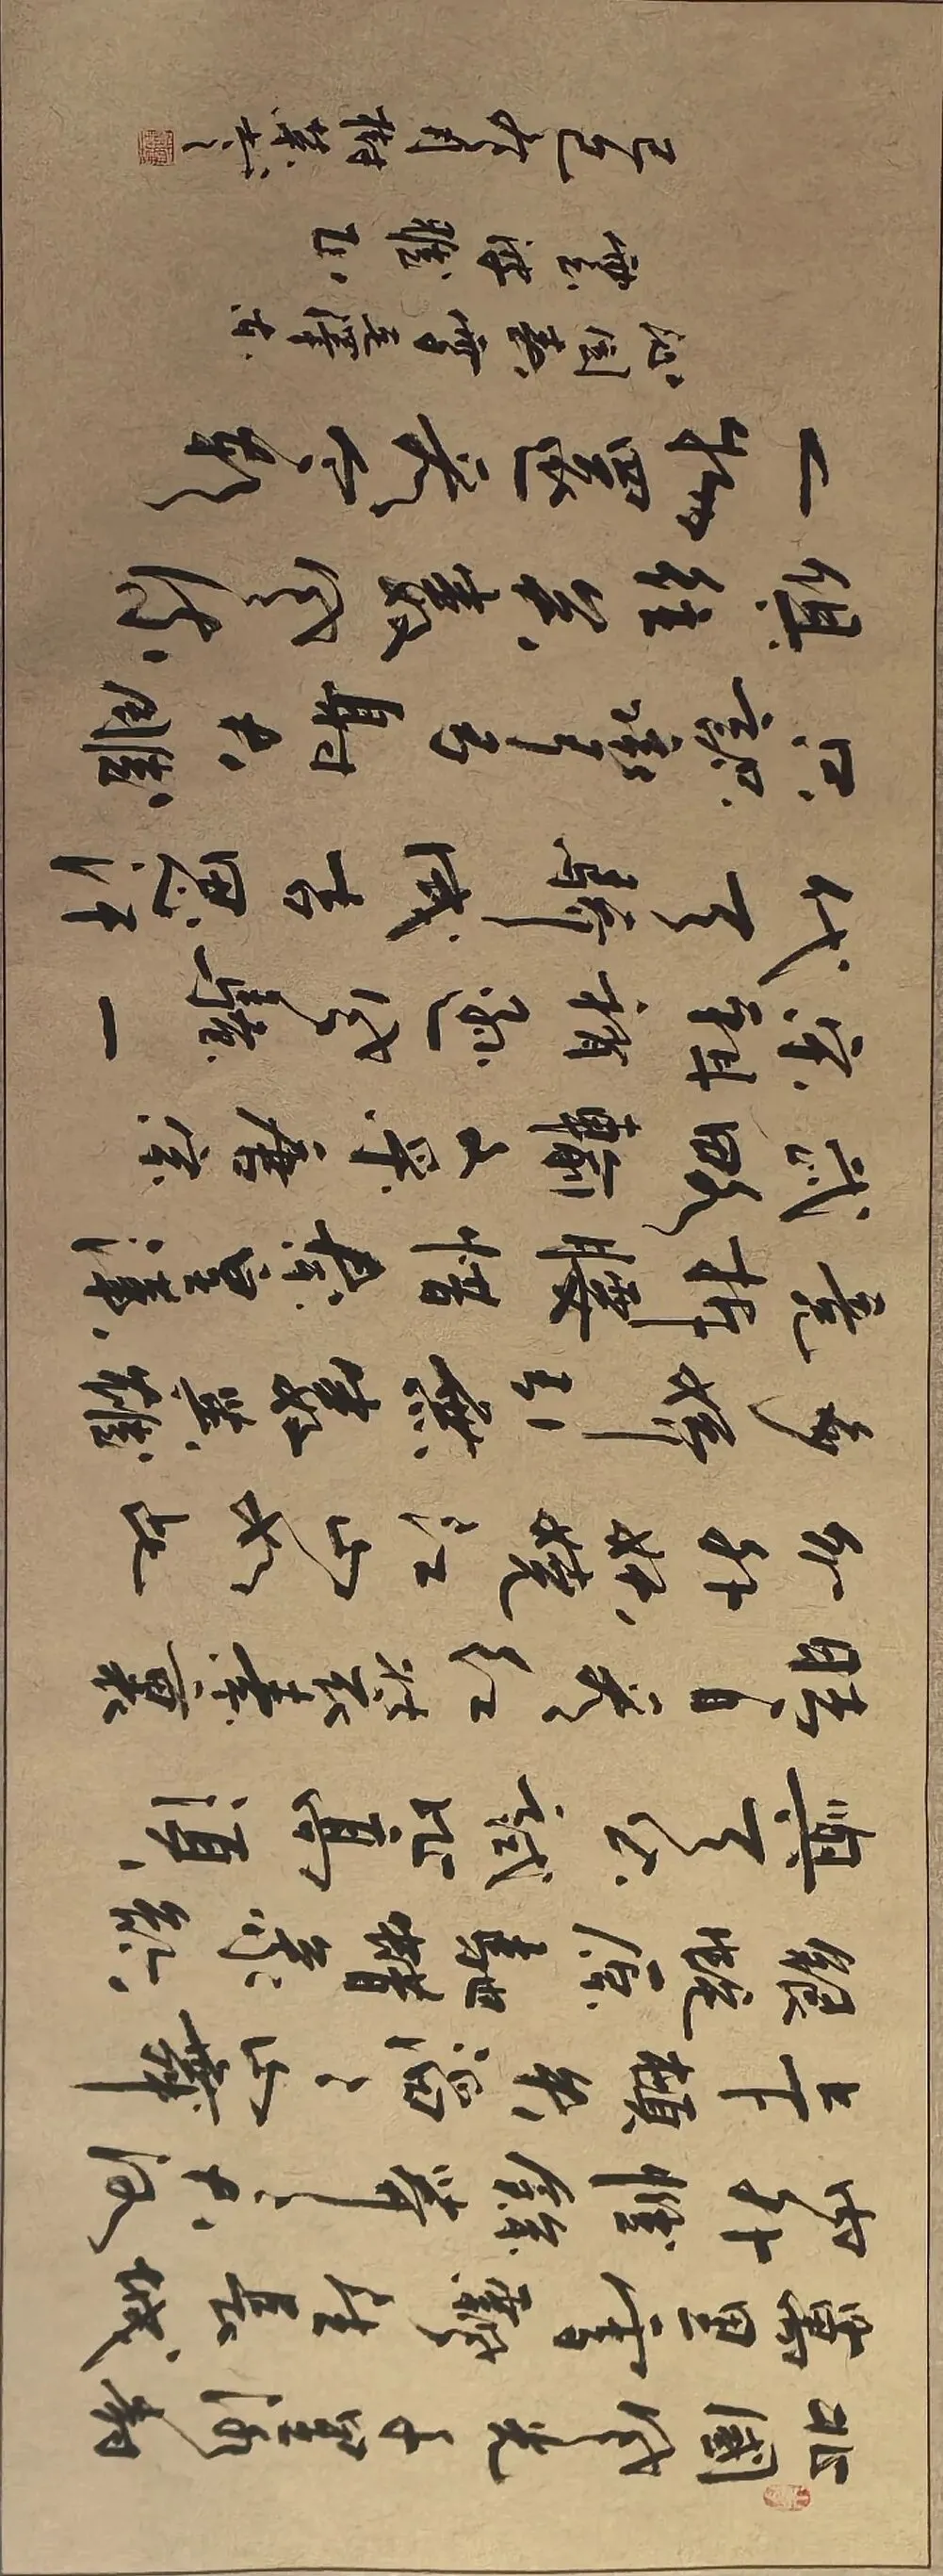 北國風光千里冰封
萬里雪飄望長城
內外惟餘莽々大河
上下頓失滔々山舞
銀蛇原馳蠟象欲
與天公試比高須
晴日看紅裝素裹
分外妖嬈江山如此
多嬌引無數英雄
竟折腰惜秦皇漢
武略輸文采唐宗
宋祖稍遜風騷一
代天驕成吉思汗
只識彎弓射大雕
俱往矣數風流
人物還看今朝
沁園春雪毛澤东
己亥